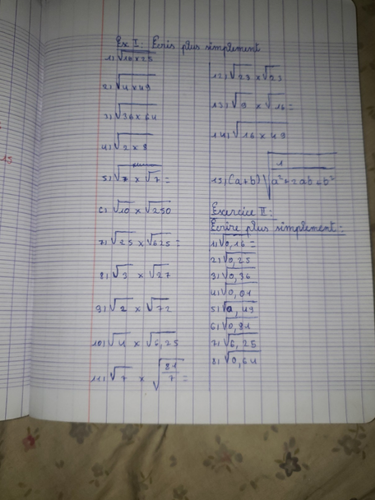 Ex I: Ecris plus simplement
1) √16 x 25
2) √4 x 49
3) √36 x 64
4) √2 x 8
5) √7 x √7 =
6) √10 x √250
7) √25 x √625 =
8) √3 x √27
9) √2 x √72
10) √4 x √6,25
11) √7 x √81/7 =
12) √23 x √23
13) √9 x √16 =
14) √16 x 49
15) (a+b) √1/a²+2ab+b²
Exercice II:
Ecrire plus simplement:
1) √0,16 =
2) √0,25
3) √0,36
4) √0,01
5) √0,49
6) √0,81
7) √6,25
8) √0,64